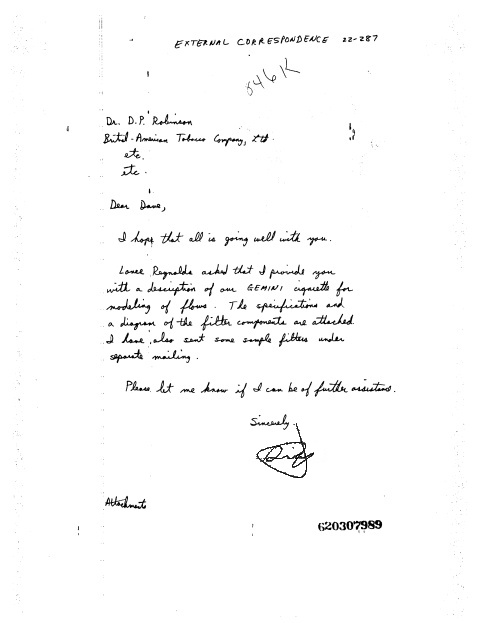 EXTERNAL CORRESPONDENCE 22-287
846K
Dr. D.P. Robinson
British-American Tobacco Company, Ltd.
etc.
etc.
Dear Dave,
I hope that all is going well with you.
Lance Reynolds asked that I provide you
with a description of our GEMINI cigarette for
modeling of flows. The specifications and
a diagram of the filter components are attached.
I have also sent some sample filters under
separate mailing.
Please let me know if I can be of further assistance.
Sincerely,
Attachments
620307989